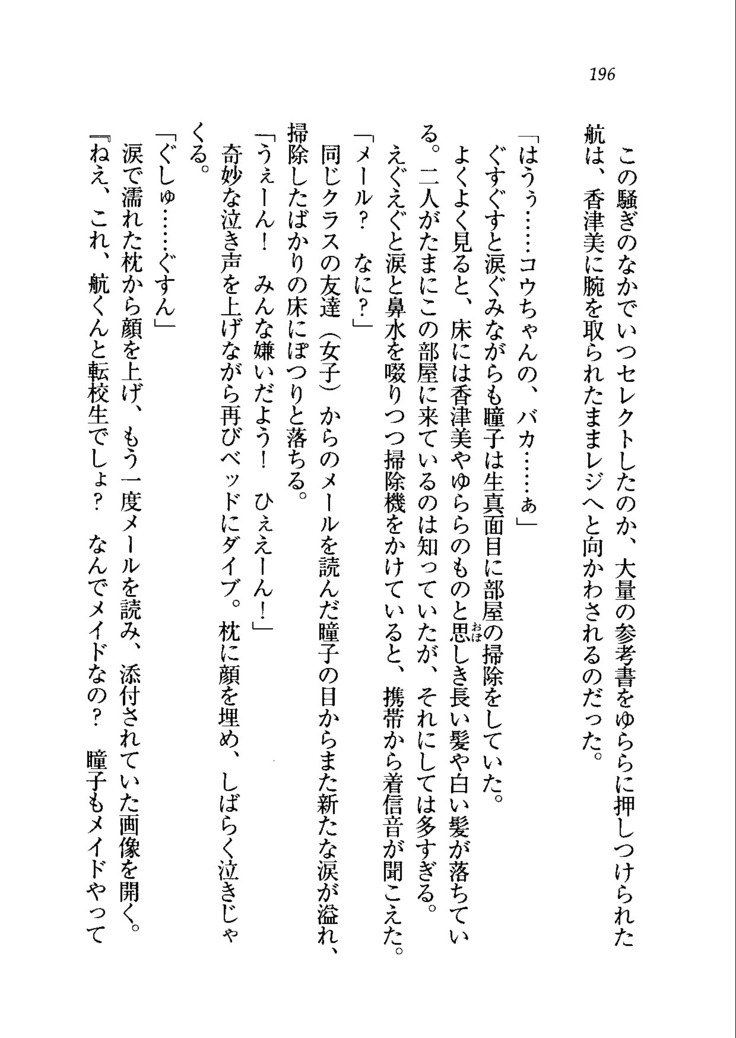 196
この騒ぎのなかでいつセレクトしたのか、大量の参考書をゆららに押しつけられた
航は、香津美に腕を取られたままレジへと向かわされるのだった。
「はうぅ……コウちゃんの、バカ……ぁ」
ぐすぐすと涙ぐみながらも瞳子は生真面目に部屋の掃除をしていた。
よくよく見ると、床には香津美やゆららのものと思しき長い髪や白い髪が落ちてい
おぼ
る。二人がたまにこの部屋に来ているのは知っていたが、それにしては多すぎる。
えぐえぐと涙と鼻水を啜りつつ掃除機をかけていると、携帯から着信音が聞こえた。
「メール？　なに？」
同じクラスの友達（女子）からのメールを読んだ瞳子の目からまた新たな涙が溢れ、
掃除したばかりの床にぽつりと落ちる。
「うぇーん！　みんな嫌いだよう！　ひぇえーん！」
奇妙な泣き声を上げながら再びベッドにダイブ。枕に顔を埋め、しばらく泣きじゃ
くる。
「ぐしゅ……ぐすん」
涙で濡れた枕から顔を上げ、もう一度メールを読み、添付されていた画像を開く。
『ねえ、これ、航くんと転校生でしょ？　なんでメイドなの？　瞳子もメイドやって